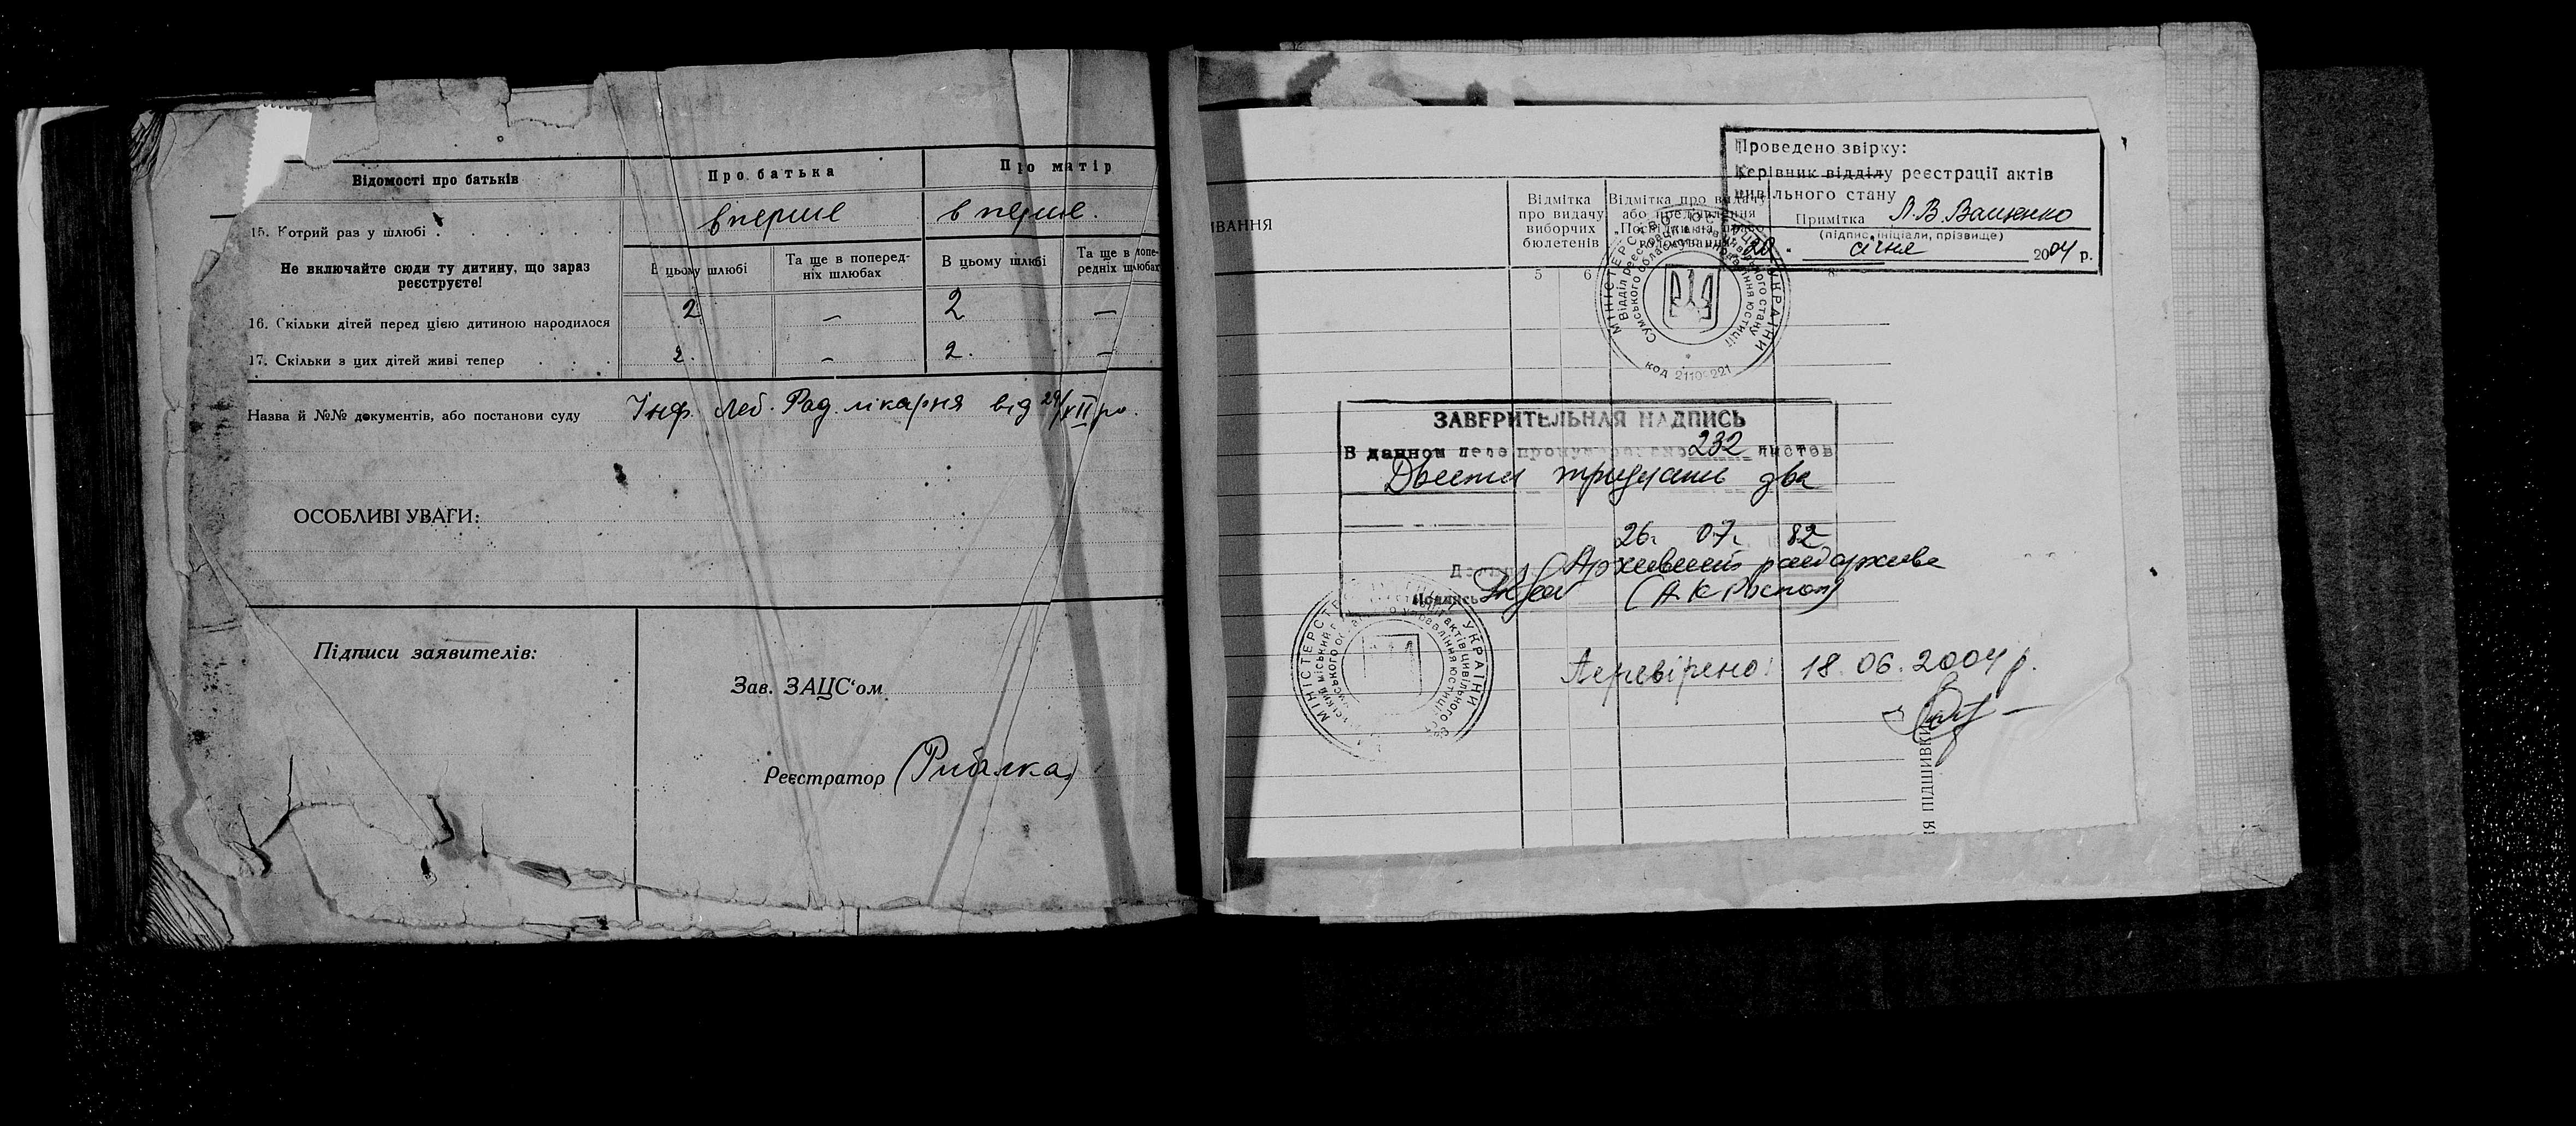 Відомості про батьків
Про батька
Про матір
15. Котрий раз у шлюбі
вперше
вперше.
Не включайте сюди ту дитину, що зараз
реєструєте!
В цьому шлюбі
Та ще в поперед-
ніх шлюбах
В цьому шлюбі
Та ще в попе-
редніх шлюбах
16. Скільки дітей перед цією дитиною народилося
2
—
2
—
17. Скільки з цих дітей живі тепер
2.
—
2.
—
Назва й №№ документів, або постанови суду
Інф. Леб. Рад. лікарня від 29/XII
ОСОБЛИВІ УВАГИ:
Підписи заявителів:
Зав. ЗАЦС'ом
Реєстратор (Рибалка)
ІВАННЯ
Відмітка
про видачу
виборчих
бюлетенів
Відмітка про видачу
або пред'явлення
"Посвідки на право
голосування"
Примітка
5
6
8
Проведено звірку:
Керівник відділу реєстрації актів
цивільного стану
Л.В. Ващенко
(підпис, ініціали, прізвище)
20 " січня 2004 р.
МІНІСТЕРСТВО ЮСТИЦІЇ УКРАЇНИ
Відділ реєстрації актів цивільного стану
Сумського обласного управління юстиції
ЗАВЕРИТЕЛЬНАЯ НАДПИСЬ
В данном деле пронумеровано 232 листов
Двести тридцать два
26. 07. 82
Архивист райархива
Подпись
Перевірено: 18.06.2004 р.
МІНІСТЕРСТВО ЮСТИЦІЇ УКРАЇНИ
Я ПІДШИВКИ